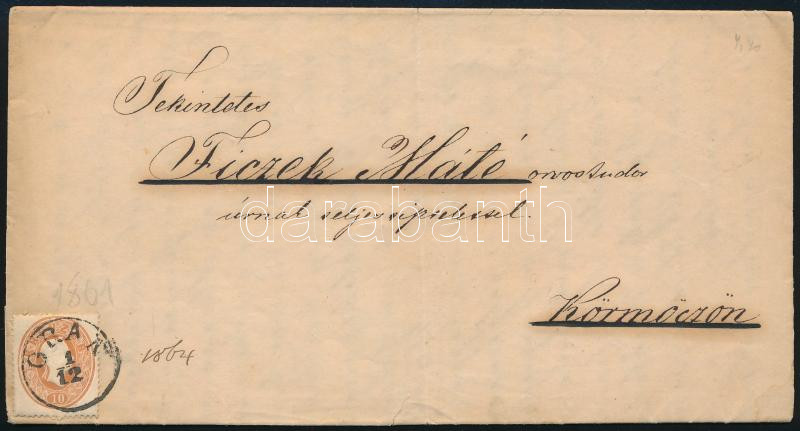 4,40
Tekintetes
Ficzek Máté orvostudor
úrnak teljes tisztelettel.
darabanth
Körmöczön
1861
GRAN
1
12
10
1864